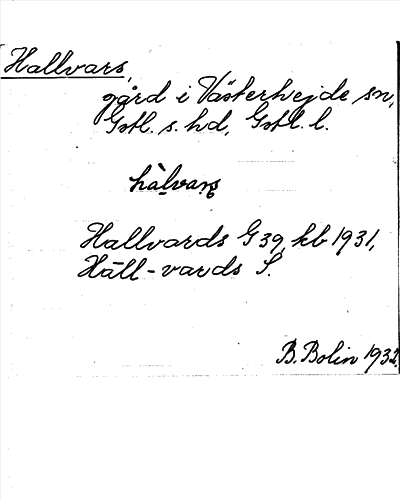 Hallvars,
gård i Västerhejde sn,
Gotl. s. hd, Gotl. l.
hàlvaṣ
Hallvards G 39, kb 1931,
Häll-vards S.
B. Bolin 1932.